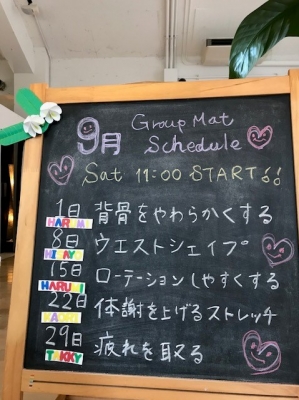 9月 Group Mat Schedule
Sat 11:00 START!!
1日 背骨をやわらかくする
8日 ウエストシェイプ
15日 ローテーションしやすくする
HARUMI
22日 体謝を上げるストレッチ
29日 疲れを取る
TAKKY